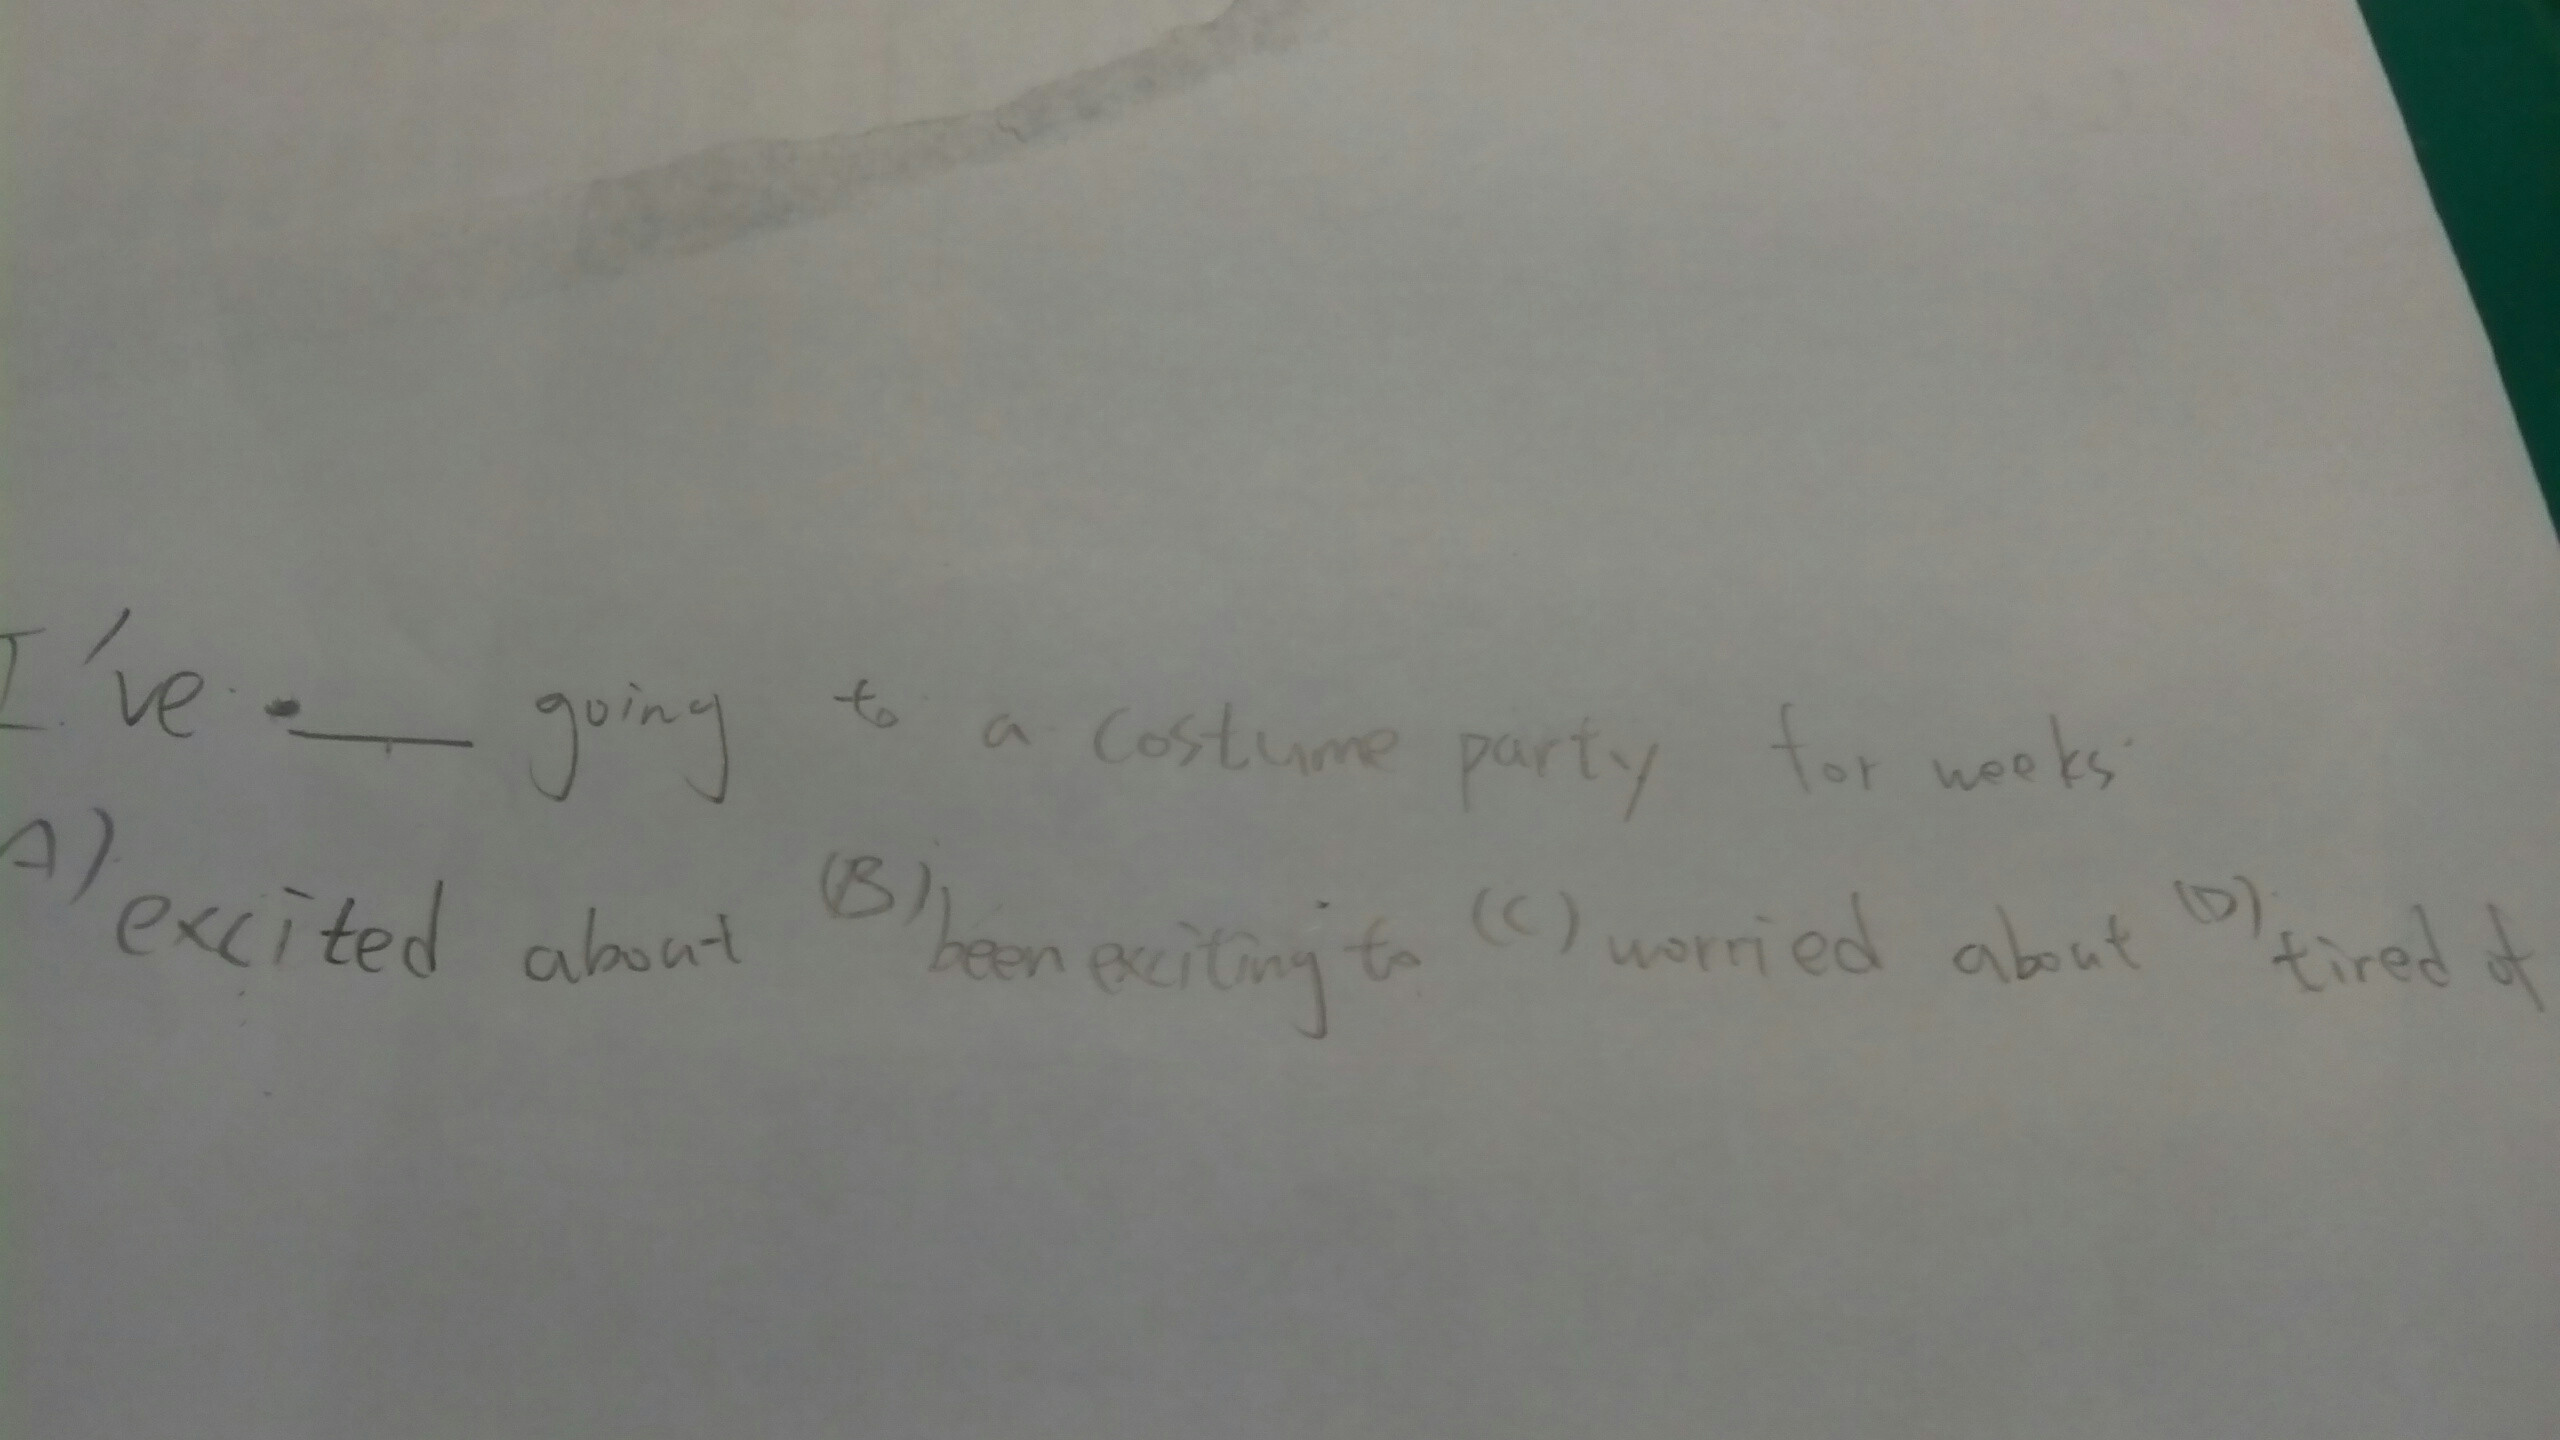 I've ___ going to a costume party for weeks.
A) excited about (B) been exciting to (C) worried about (D) tired of